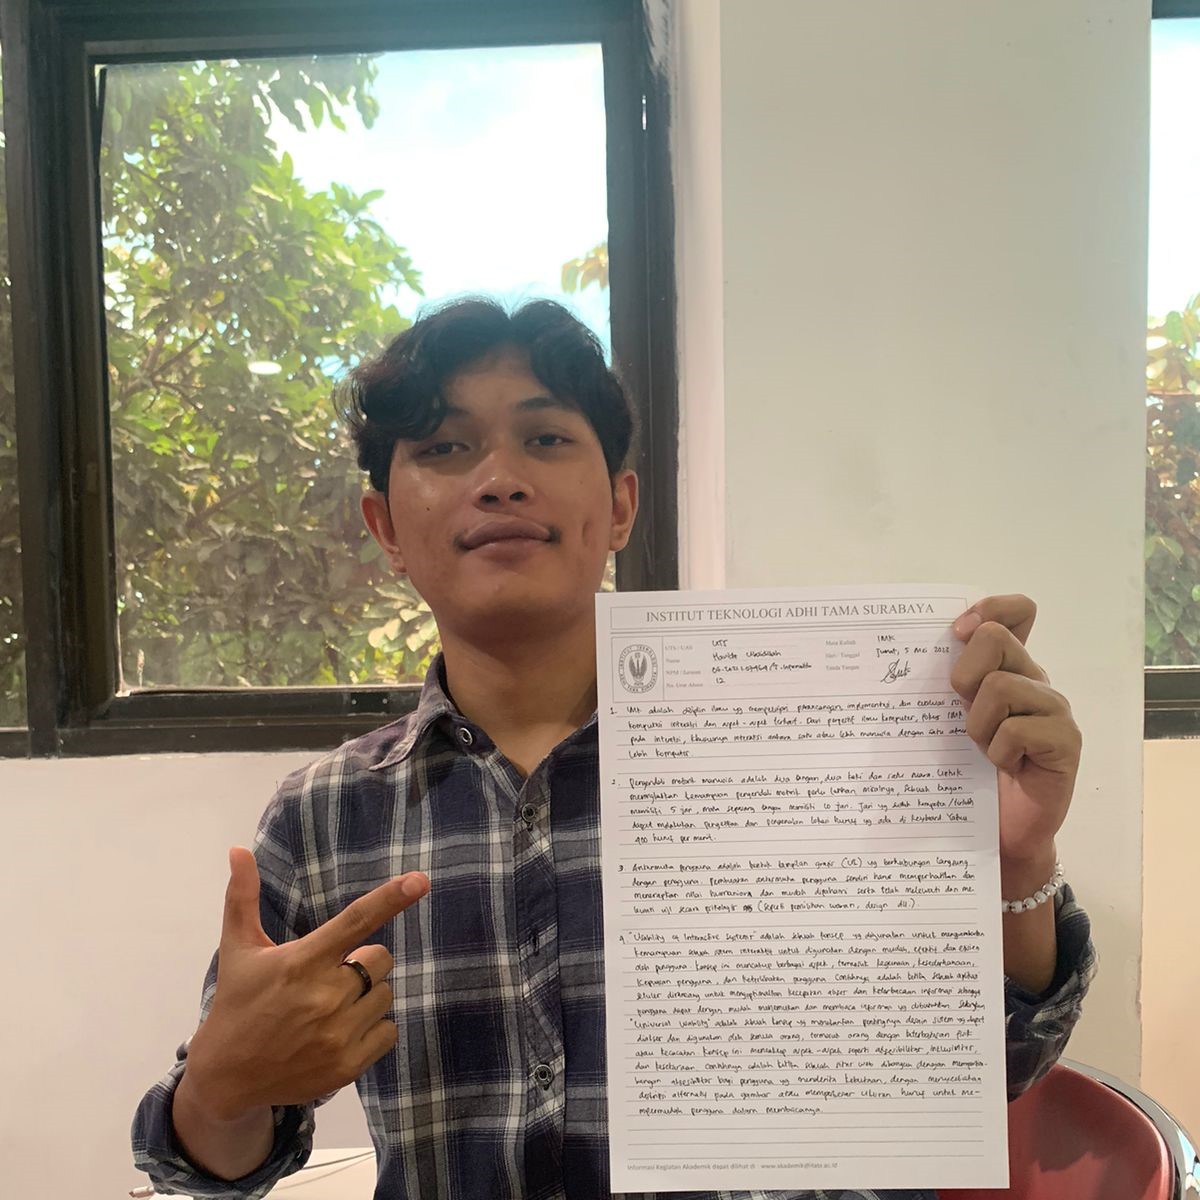 INSTITUT TEKNOLOGI ADHI TAMA SURABAYA
UTS / UAS UTS Mata Kuliah IMK
Nama Hari / Tanggal Jumat, 5 Mei 2023
NPM / Jurusan Tanda Tangan
No. Urut Absen 12
1. IMK adalah disiplin ilmu yg mempelajari perancangan, implementasi, dan evaluasi
komputasi interaktif dan aspek-aspek terkait. Dari perspektif ilmu komputer, fokus IMK
pada interaksi, khususnya interaksi antara satu atau lebih manusia dengan satu atau
lebih komputer.
2. Pengendali motorik manusia adalah dua tangan, dua kaki dan satu suara. Untuk
meningkatkan kemampuan pengendali motorik perlu latihan, misalnya, sebuah tangan
memiliki 5 jari, maka sepasang tangan memiliki 10 jari. Jari yg sudah kompeten / terlatih
dapat melakukan pengetikan dan pengenalan lokasi huruf yg ada di keyboard Yaitu
400 huruf per menit.
3. Antarmuka pengguna adalah bentuk tampilan grafis (UI) yg berhubungan langsung
dengan pengguna. Pembuatan antarmuka pengguna sendiri harus memperhatikan dan
menerapkan nilai humaniora dan mudah dipahami serta telah melewati dan me
lewati uji secara psikologis (seperti pemilihan warna, design dll.)
4. "Usability of Interactive Systems" adalah sebuah konsep yg digunakan untuk menggambarkan
kemampuan sebuah sistem interaktif untuk digunakan dengan mudah, efektif dan efisien
oleh pengguna. Konsep ini mencakup berbagai aspek, termasuk kegunaan, kesederhanaan,
kepuasan pengguna, dan keterlibatan pengguna. Contohnya adalah ketika sebuah aplikasi
seluler dirancang untuk mengoptimalkan kecepatan akses dan keterbacaan informasi sehingga
pengguna dapat dengan mudah menemukan dan membaca informasi yg dibutuhkan. Sedangkan
"Universal Usability" adalah sebuah konsep yg menekankan pentingnya desain sistem yg dapat
diakses dan digunakan oleh semua orang, termasuk orang dengan keterbatasan fisik
atau kecacatan. Konsep ini mencakup aspek-aspek seperti aksesibilitas, inklusivitas,
dan kesetaraan. Contohnya adalah ketika sebuah situs web dibangun dengan mempertim-
bangkan aksesibilitas bagi pengguna yg menderita kebutaan, dengan menyediakan
deskripsi alternatif pada gambar atau memperbesar ukuran huruf untuk me-
mpermudah pengguna dalam membacanya.
Informasi Kegiatan Akademik dapat dilihat di : www.akademik@itats.ac.id